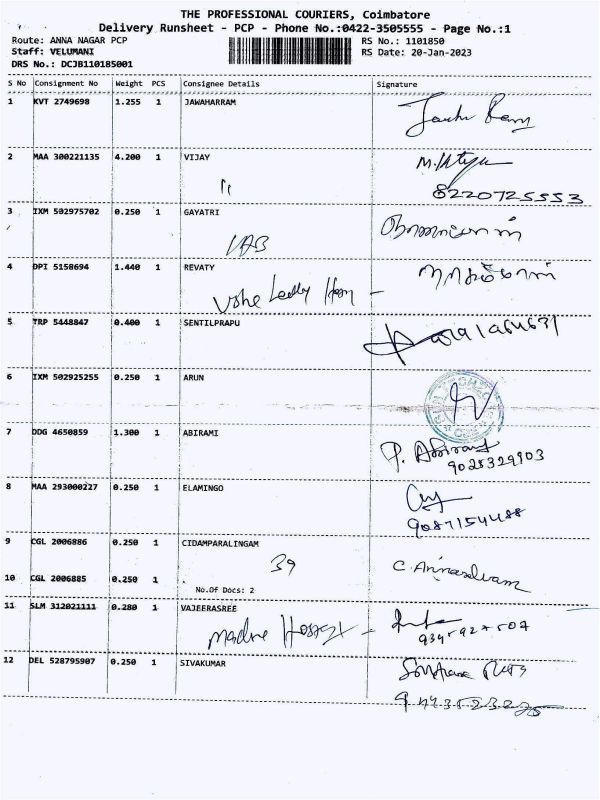 THE PROFESSIONAL COURIERS, Coimbatore
Delivery Runsheet - PCP - Phone No.:0422-3505555 - Page No.:1
Route: ANNA NAGAR PCP
RS No.: 1101850
Staff: VELUMANI
RS Date: 20-Jan-2023
DRS No.: DCJB110185001
S No Consignment No Weight PCS Consignee Details Signature
1 KVT 2749698 1.255 1 JAWAHARRAM
2 MAA 300221135 4.200 1 VIJAY
8220725553
3 IXM 502975702 0.250 1 GAYATRI
4 DPI 5158694 1.440 1 REVATY
5 TRP 5448847 0.400 1 SENTILPRAPU
6 IXM 502925255 0.250 1 ARUN
7 DDG 4650859 1.300 1 ABIRAMI
P. Abirami
9025329903
8 MAA 293000227 0.250 1 ELAMINGO
9087154488
9 CGL 2006886 0.250 1 CIDAMPARALINGAM
39
10 CGL 2006885 0.250 1
No.Of Docs: 2
11 SLM 312021111 0.280 1 VAJEERASREE
12 DEL 528795907 0.250 1 SIVAKUMAR